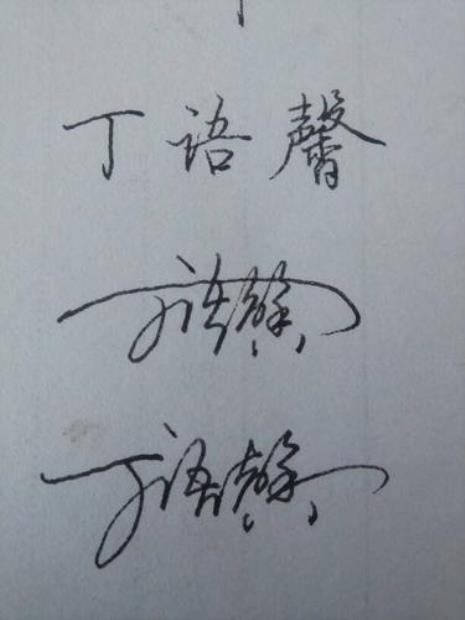 丁语馨
丁语馨
丁语馨